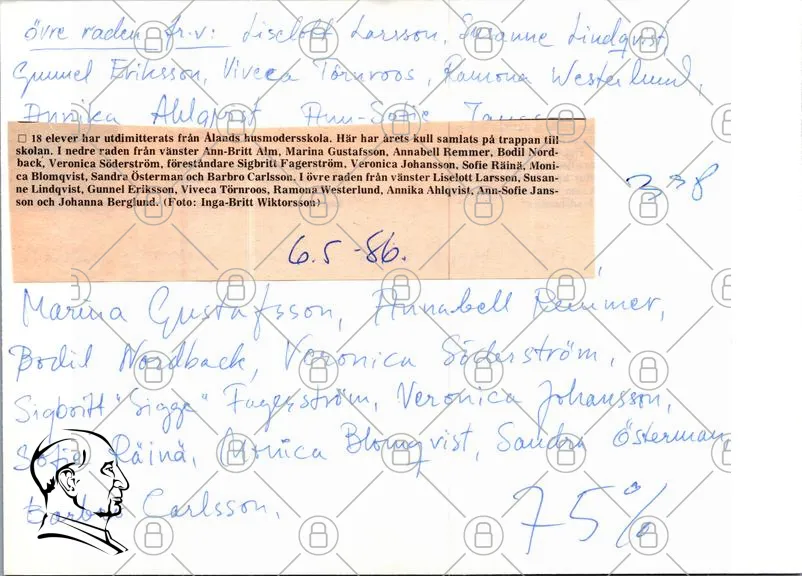 övre raden fr.v: Liselott Larsson, Susanne Lindqvist
Gunnel Eriksson, Viveca Törnroos, Ramona Westerlund,
Annika Ahlqvist Ann-Sofie Jansson
□ 18 elever har utdimitterats från Ålands husmodersskola. Här har årets kull samlats på trappan till
skolan. I nedre raden från vänster Ann-Britt Alm, Marina Gustafsson, Annabell Remmer, Bodil Nord-
back, Veronica Söderström, föreståndare Sigbritt Fagerström, Veronica Johansson, Sofie Räinä, Moni-
ca Blomqvist, Sandra Österman och Barbro Carlsson. I övre raden från vänster Liselott Larsson, Susan-
ne Lindqvist, Gunnel Eriksson, Viveca Törnroos, Ramona Westerlund, Annika Ahlqvist, Ann-Sofie Jans-
son och Johanna Berglund. (Foto: Inga-Britt Wiktorsson)
6.5 -86.
Marina Gustafsson, Annabell Remmer,
Bodil Nordback, Veronica Söderström,
Sigbritt "Sigge" Fagerström, Veronica Johansson,
Sofie Räinä, Monica Blomqvist, Sandra Österman,
Barbro Carlsson.
75%